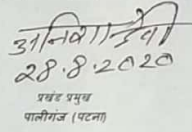 अनिशा देवी
28.8.2020
प्रखंड प्रमुख
पालीगंज (पटना)